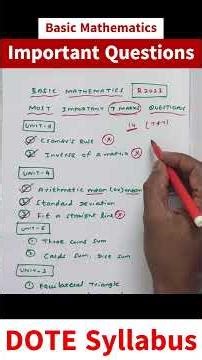 Basic Mathematics
Important Questions
BASIC MATHEMATICS R2023
MOST IMPORTANT 7 MARKS QUESTIONS
14 (7+7)
① Cramer's Rule
② Inverse of a matrix
UNIT-4
① Arithmetic mean (or) mean
② Standard Deviation
③ Fit a straight line
UNIT-5
① Three coins sum
② Cards sum, dice sum
① Equilateral Triangle
DOTE Syllabus